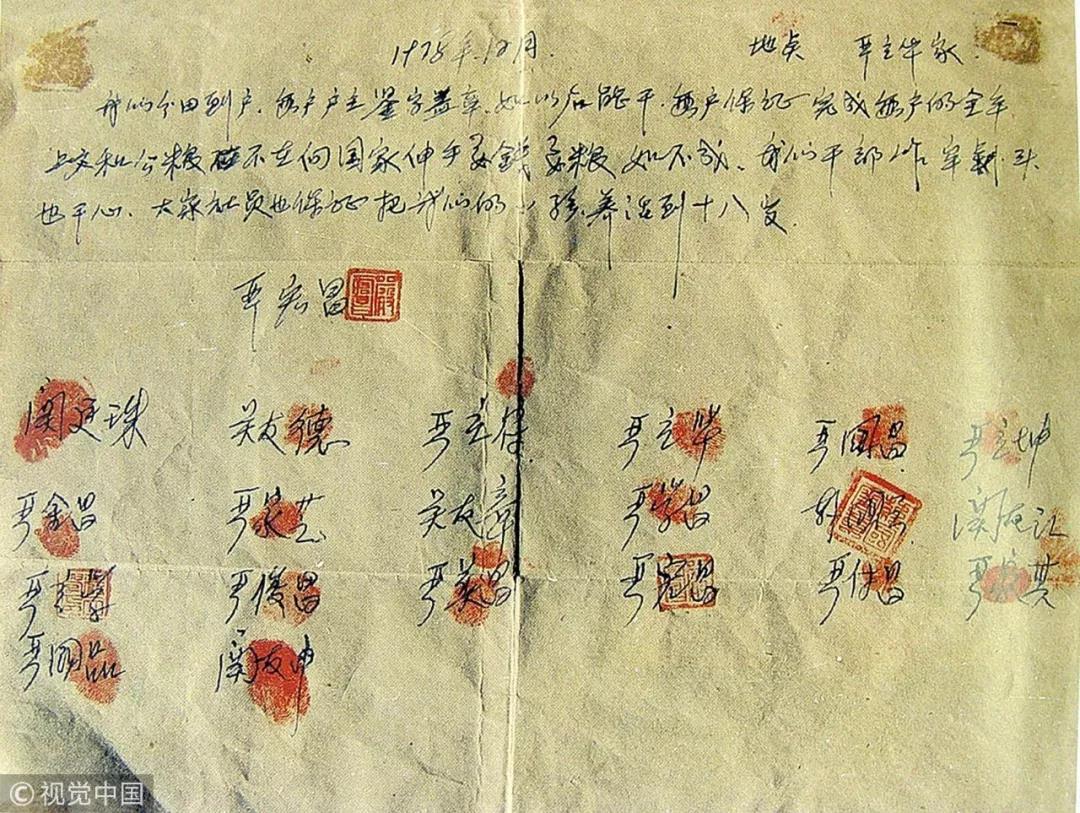 1978年12月. 地点 严立华家.
我们分田到户,每户户主鉴字盖章,如以后能干,每户保证完成每户的全年
上交和公粮不在向国家伸手要钱要粮如不成,我们干部作牢剎头
也干心,大家社员也保证把我们的小孩养活到十八岁.
严宏昌
关廷珠 关友德 严立符 严立华 严国昌 严立坤
严金昌 严家芝 关友章 严学昌 韩国云 关友江
严立学 严俊昌 严美昌 严宏昌 严付昌 严家其
严国品 关友申
视觉中国